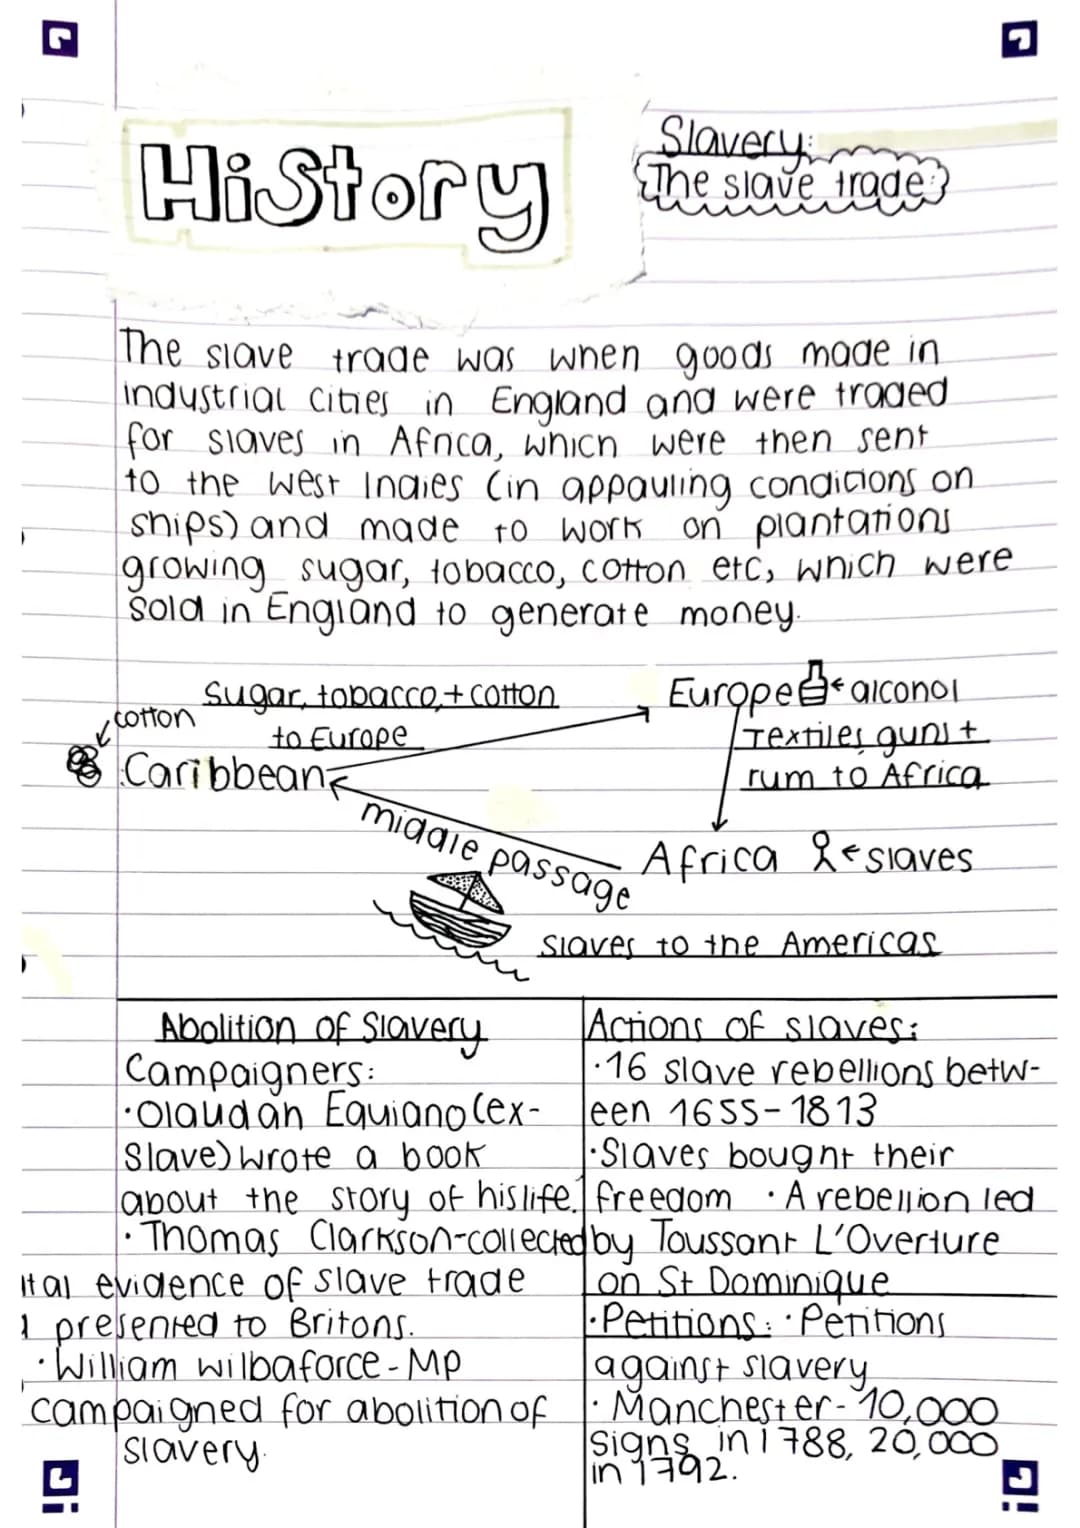 History
Slavery:
The slave trade:
The slave trade was when goods made in
industrial cities in England and were traded
for slaves in Africa, which were then sent
to the West Indies (in appauling conditions on
ships) and made to work on plantations
growing sugar, tobacco, cotton etc, which were
sold in England to generate money.
Sugar, tobacco, + cotton
to Europe
cotton
Caribbean
Europe
alcohol
Textiles, guns +
rum to Africa
middle passage
Africa
slaves
slaves to the Americas
Abolition of Slavery
Campaigners:
·Olaudah Equiano (ex-
Slave) wrote a book
about the story of his life.
·Thomas Clarkson-collected
ital evidence of slave trade
presented to Britons.
·William wilbaforce - MP
campaigned for abolition of
slavery.
Actions of slaves:
·16 slave rebellions betw-
een 1655-1813
·Slaves bought their
freedom ·A rebellion led
by Toussant L'Overture
on St Dominique
·Petitions: ·Petitions
against slavery
·Manchester- 10,000
signs in 1788, 20,000
in 1792.